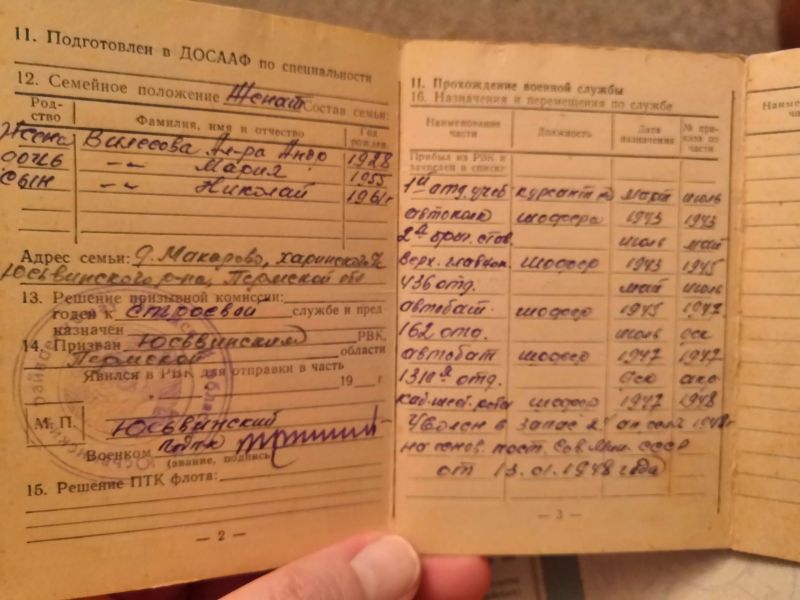 11. Подготовлен в ДОСААФ по специальности
12. Семейное положение Женат Состав семьи:
Род-
ство
Фамилия, имя и отчество
Год
рожден.
Жена Вилесова Ан-ра Андр 1928
дочь -"- Мария 1955
сын -"- Николай 1961г
Адрес семьи: д. Макарово, харинского
Юсьвинского р-на, Пермской обл
13. Решение призывной комиссии:
годен к строевой службе и пред
назначен
14. Призван Юсьвинским РВК,
Пермской области
Явился в РВК для отправки в часть
19 г.
М. П.
Юсьвинский
Военком
(звание, подпись)
15. Решение ПТК флота:
— 2 —
II. Прохождение военной службы
16. Назначения и перемещения по службе
Наименование
части
Должность
Дата
назначения
№ при-
каза по
части
Прибыл из РВК и
зачислен в списки
1й отд. учеб курсант март июль
автополк шофера 1943 1943
2я июль май
верх. шофер 1943 1945
436 отд. май июль
автобат. шофер 1945 1947
162 отд. июль
автобат шофер 1947 1947
отд.
рота шофер 1947 1948
Уволен в запас 1948г
на основ. пост. Сов. Мин. СССР
от 13.01.1948 года
— 3 —